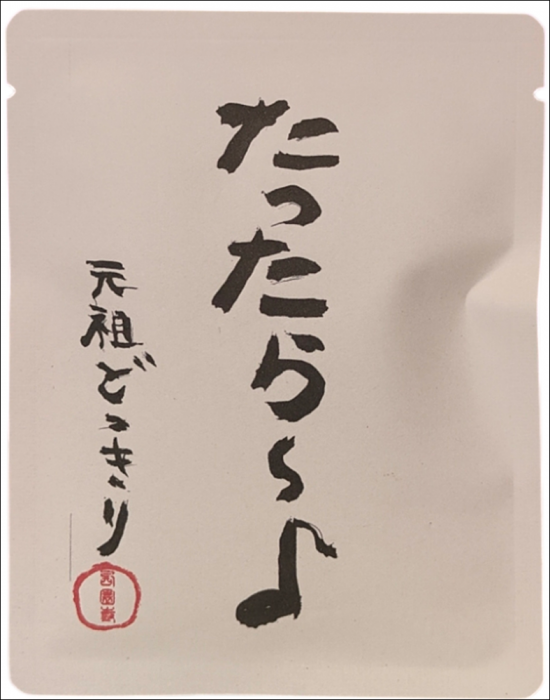 たったら〜♪
元祖どっきり